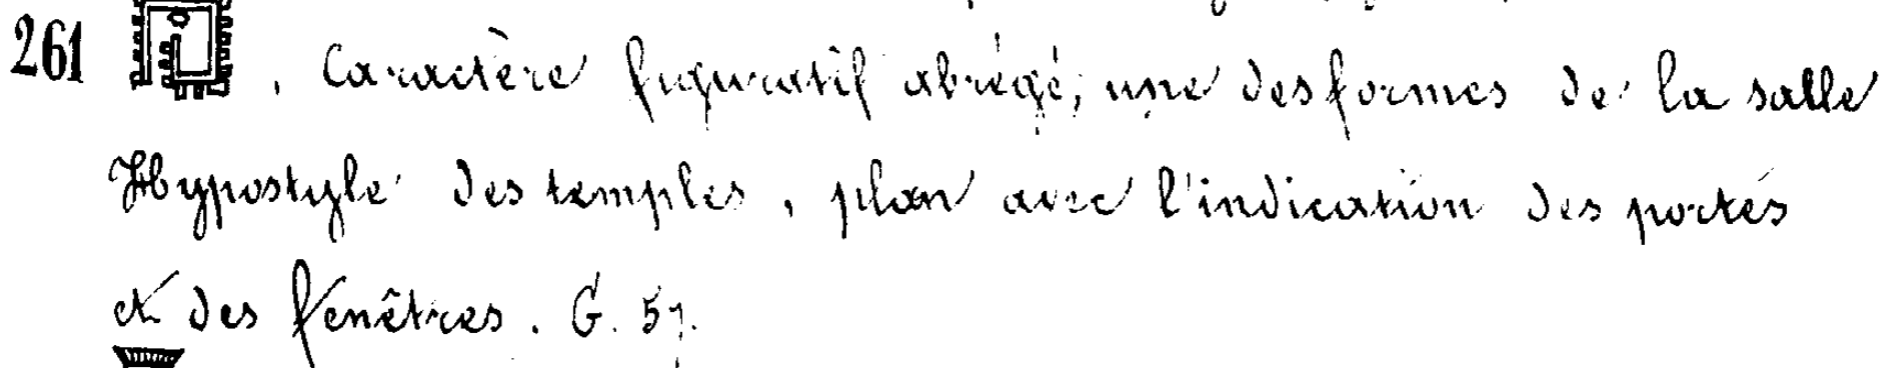 261 , Caractère figuratif abrégé; une des formes de la salle
Hypostyle des temples, plan avec l'indication des portes
et des fenêtres. G. 57.